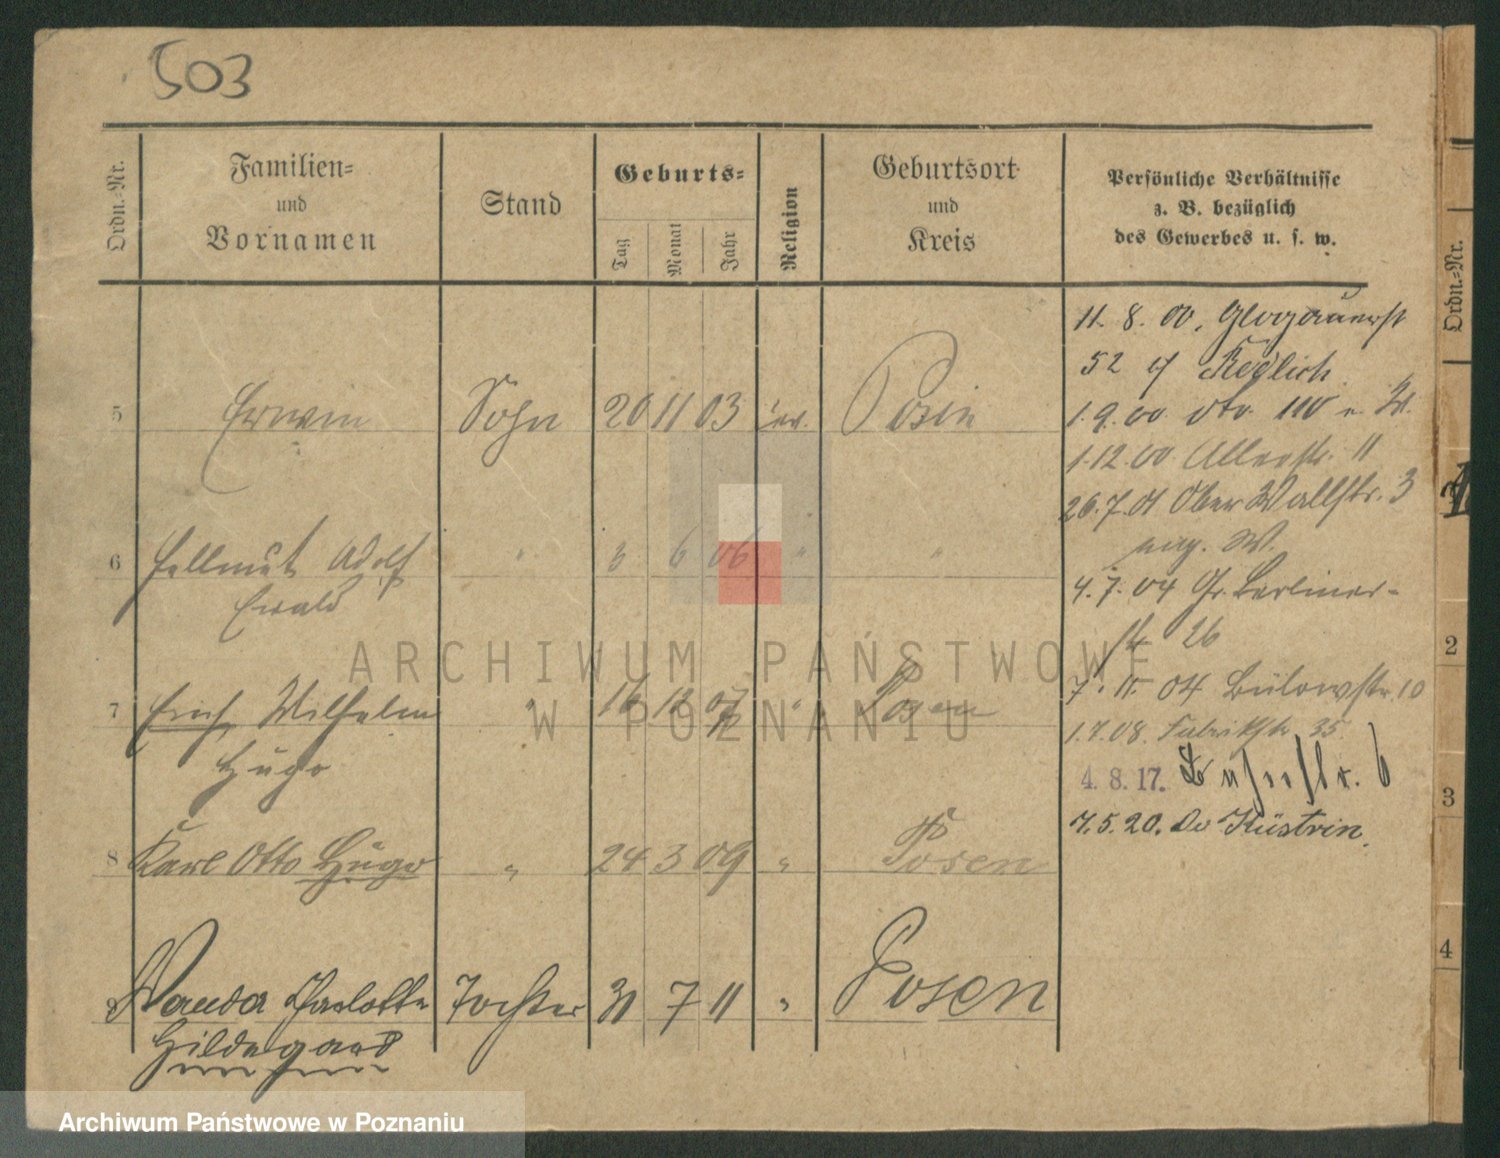 503
Ordn.-Nr.
Familien-
und
Vornamen
Stand
Geburts-
Tag
Monat
Jahr
Religion
Geburtsort
und
Kreis
Persönliche Verhältnisse
z. B. bezüglich
des Gewerbes u. s. w.
Ordn.-Nr.
11. 8. 00. Glogauerst
52
5 Erwin Sohn 20 11 03 ev. Posen
1.9.00 dto.
1.12.00
26.7.01 Ober Wallstr. 3
6 Hellmut Adolf " 6 06 " "
Ewald
W.
4.7.04 Gr. Berliner-
str 26
7.11.04 Bülowstr. 10
7 Erich Wilhelm " 16 12 07 " Posen
Hugo
1.7.08. Fabrikstr 35
4. 8. 17.
7.5.20. Küstrin
8 Karl Otto Hugo " 24 3 09 " Posen
9 Wanda Charlotte Tochter 31 7 11 " Posen
Hildegard
2
3
4
ARCHIWUM PAŃSTWOWE
W POZNANIU
Archiwum Państwowe w Poznaniu